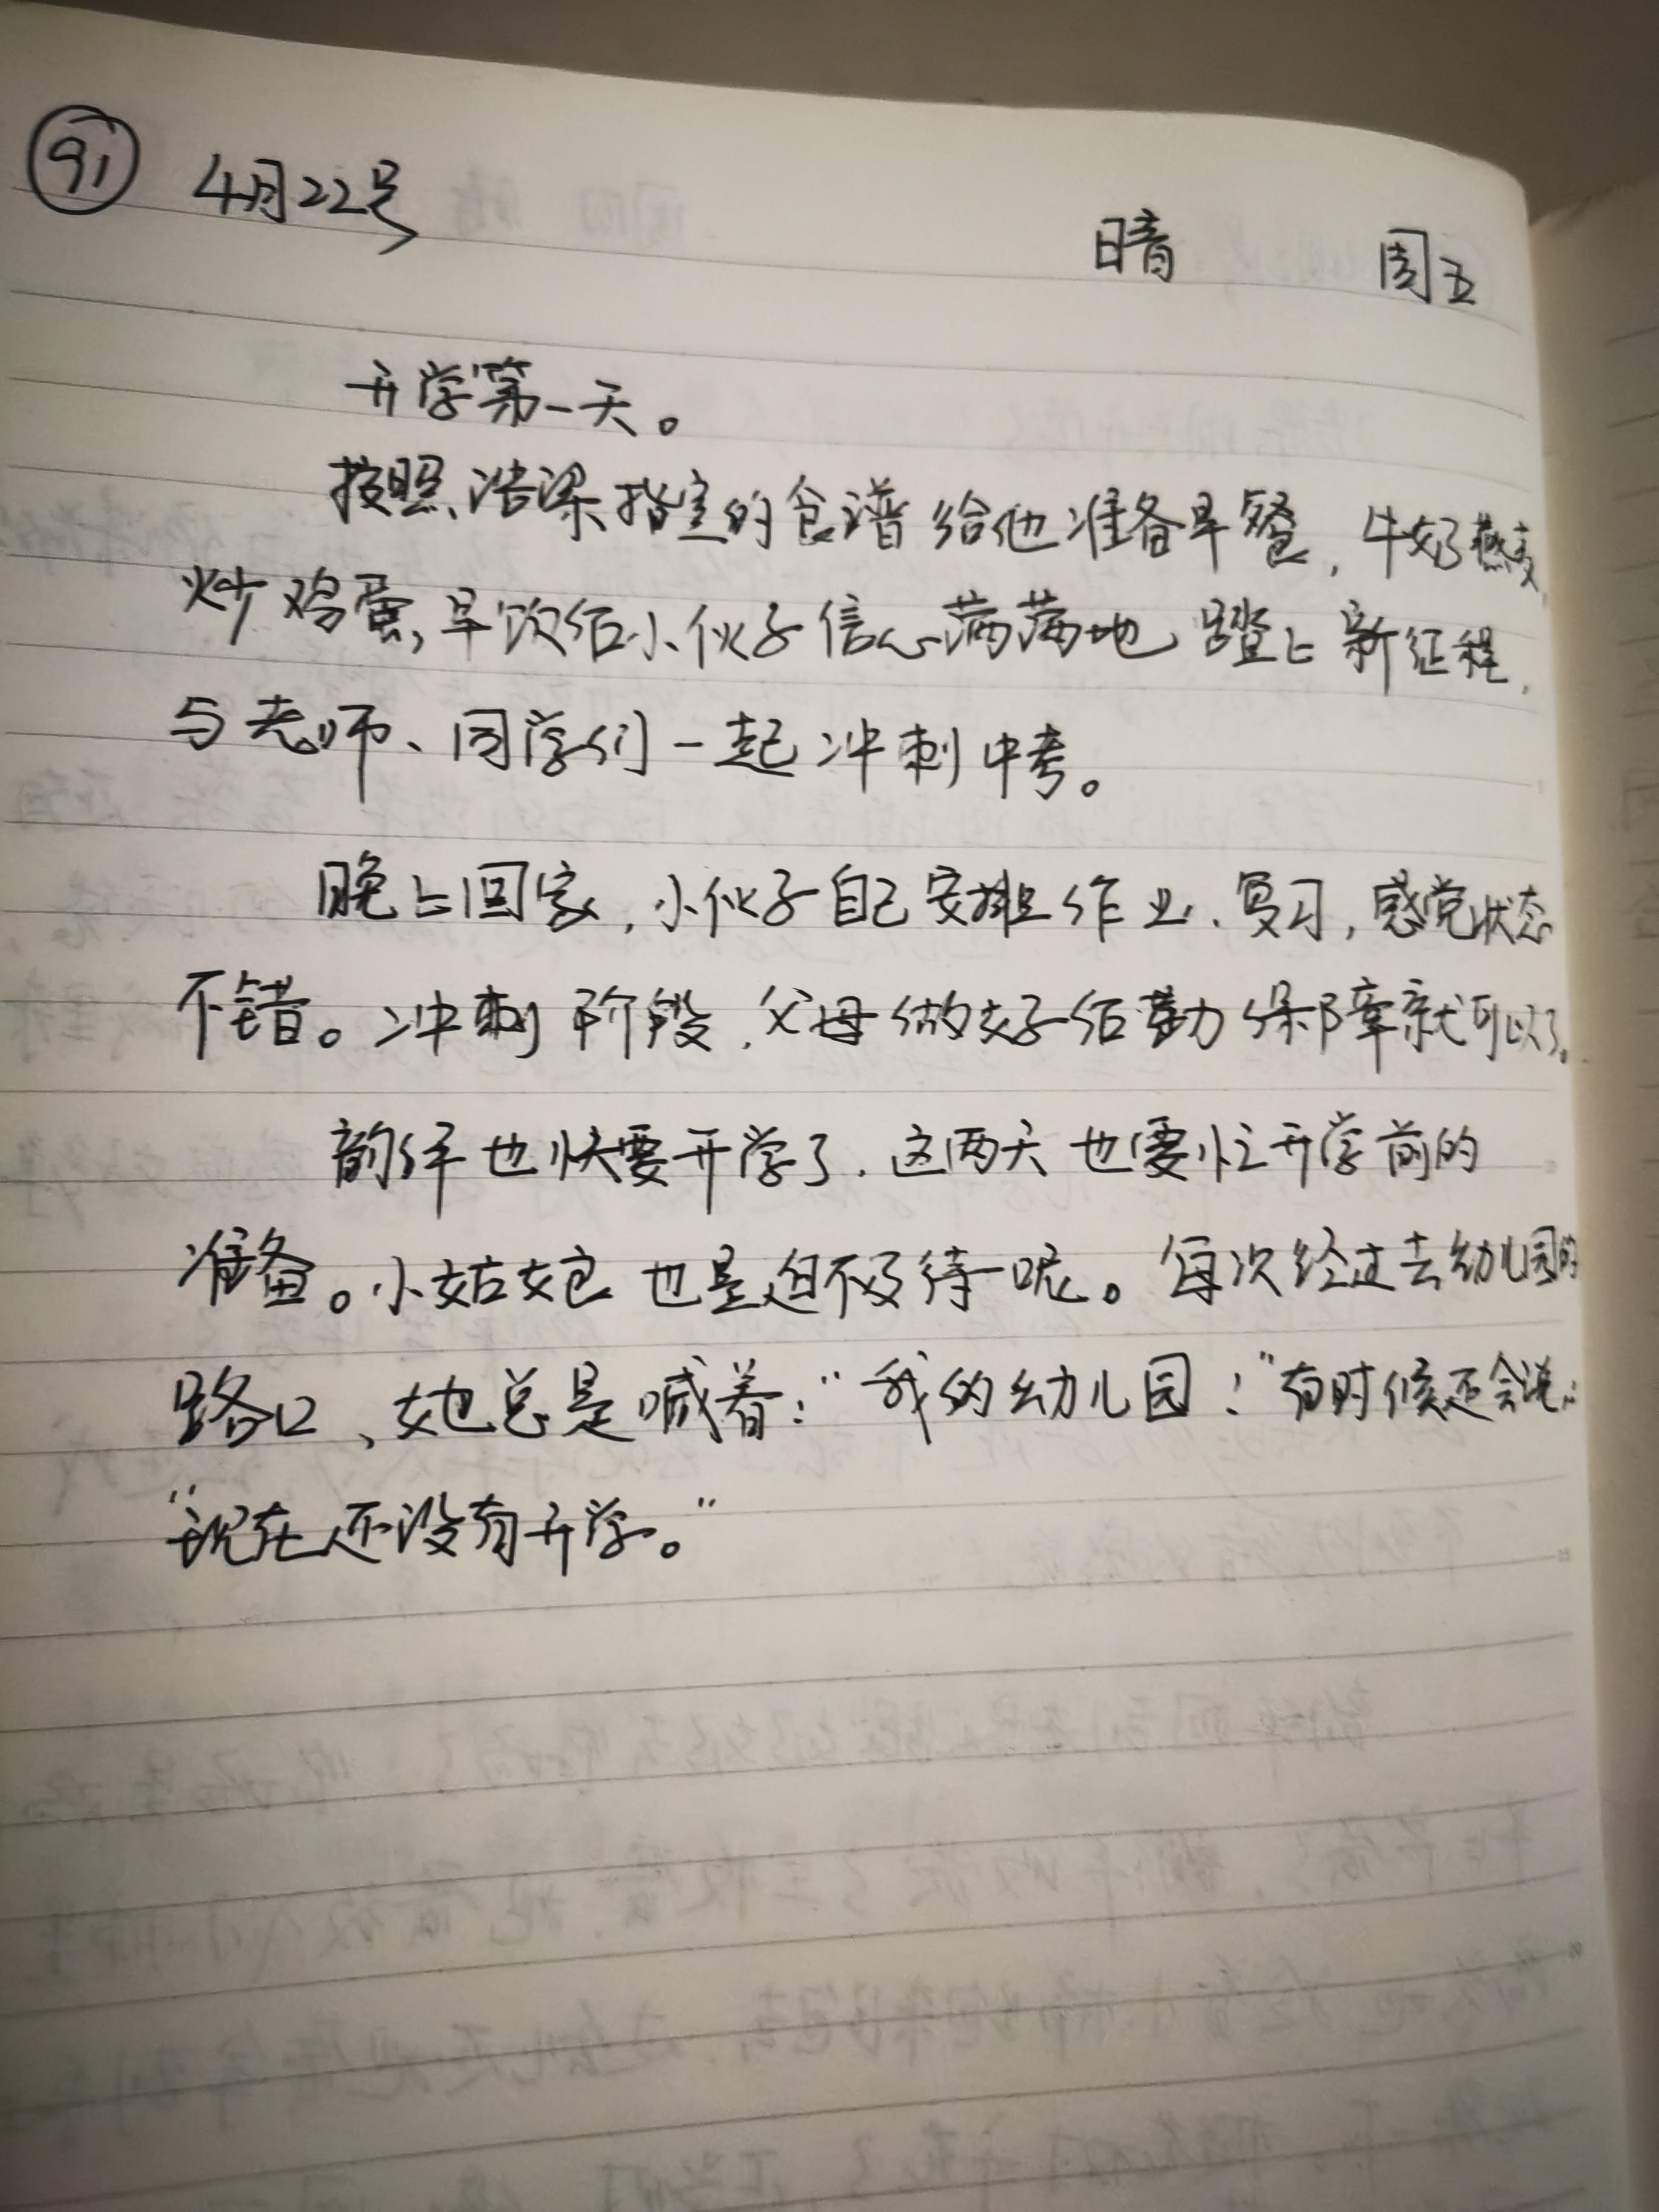 91 4月22号
晴 周五
开学第一天。
按照浩梁指定的食谱给他准备早餐,牛奶燕麦,
炒鸡蛋,早饭后小伙子信心满满地踏上新征程,
与老师、同学们一起冲刺中考。
晚上回家,小伙子自己安排作业、复习,感觉状态
不错。冲刺阶段,父母做好后勤保障就可以了。
韵绎也快要开学了,这两天也要忙开学前的
准备。小姑娘也是迫不及待呢。每次经过去幼儿园的
路口,她总是喊着:“我的幼儿园!”有时候还会说:
“现在还没有开学。”